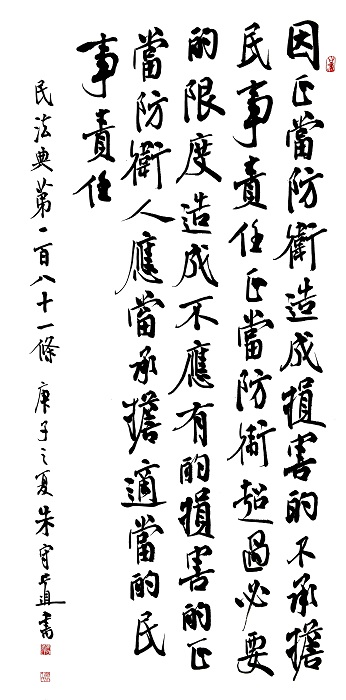 因正當防衛造成損害的不承擔
民事責任正當防衛超過必要
的限度造成不應有的損害的正
當防衛人應當承擔適當的民
事責任
民法典第一百八十一條 庚子之夏朱守道書